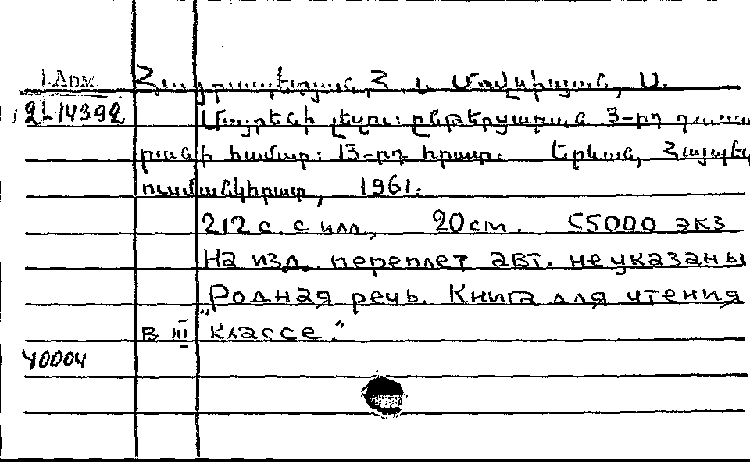 1.Арм
Հայրապետյան, Հ. և Մալխասյան, Ա.
2L 14392
Մայրենի լեզու: ընթերցարան 3-րդ դասա
րանի համար: 13-րդ հրատ. Երևան, Հայպետ
ուսմանկհրատ, 1961.
212 с. с илл., 20см. 55000 экз
На изд. переплет авт. не указаны
"Родная речь. Книга для чтения
в III классе."
40004